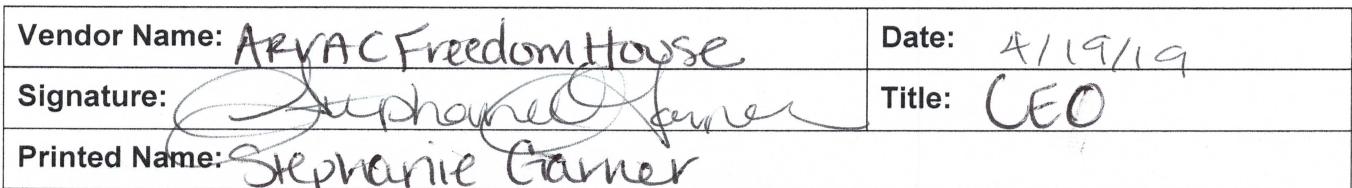 Vendor Name: ARVAC Freedom House Date: 4/19/19
Signature: Stephanie Garner Title: CEO
Printed Name: Stephanie Garner